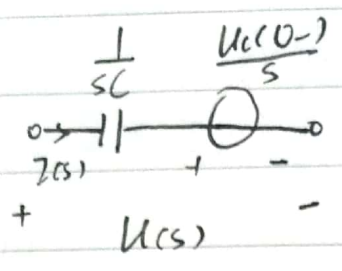 1/sC
Uc(0-)/s
I(s) + -
+ U(s) -